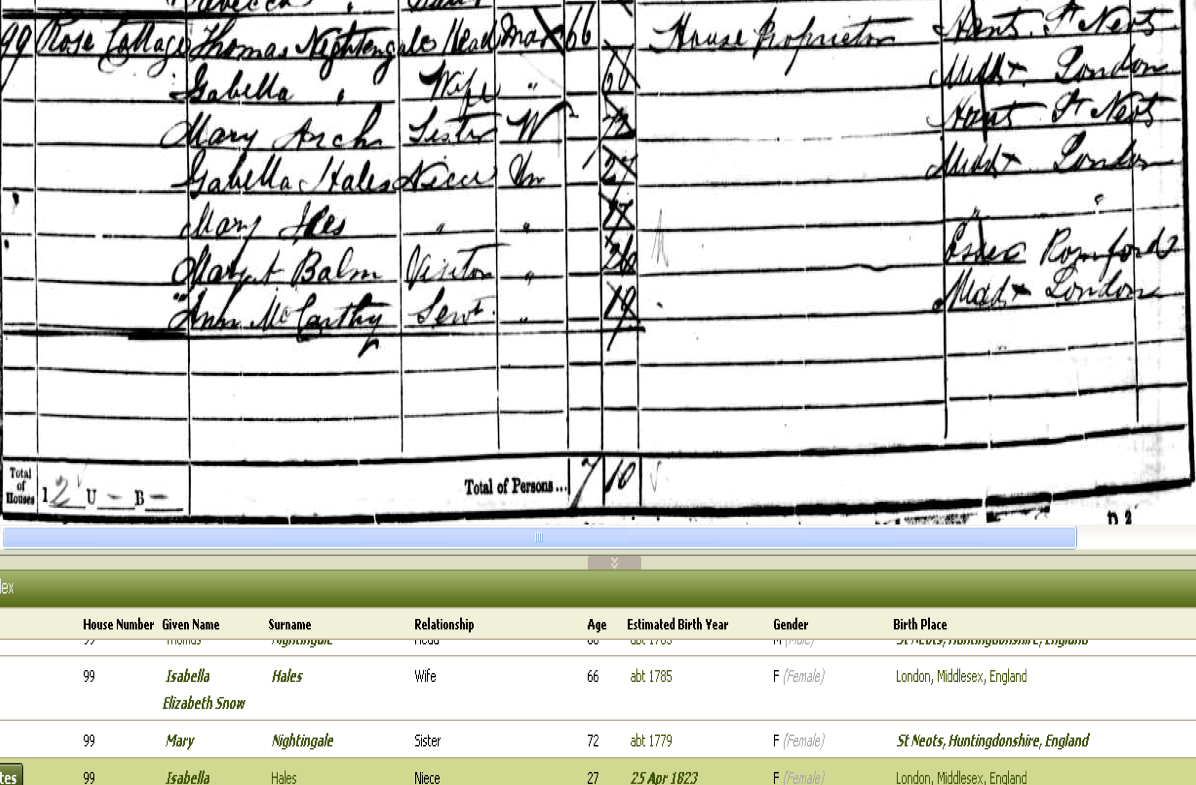 99 Rose Cottage Thomas Nightengale Head Mar 66 House Proprietor Hunts St Neots
Isabella " Wife " Middx London
Mary Arch Sister W 72 Hunts St Neots
Isabella Hales Niece Un 27 Middx London
Mary " " "
Margt Balm Visitor " 26 Essex Romford
Ann McCarthy Servt " 19 Middx London
Total of Houses I 2 U — B — Total of Persons... 7 10
D 2
dex
House Number Given Name Surname Relationship Age Estimated Birth Year Gender Birth Place
99 Thomas Nightingale Head M (Male) St Neots, Huntingdonshire, England
99 Isabella Hales Wife 66 abt 1785 F (Female) London, Middlesex, England
Elizabeth Snow
99 Mary Nightingale Sister 72 abt 1779 F (Female) St Neots, Huntingdonshire, England
tes 99 Isabella Hales Niece 27 25 Apr 1823 F (Female) London, Middlesex, England